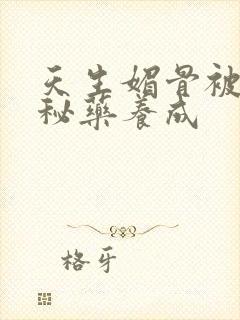 天生媚骨被
秘药养成
格牙